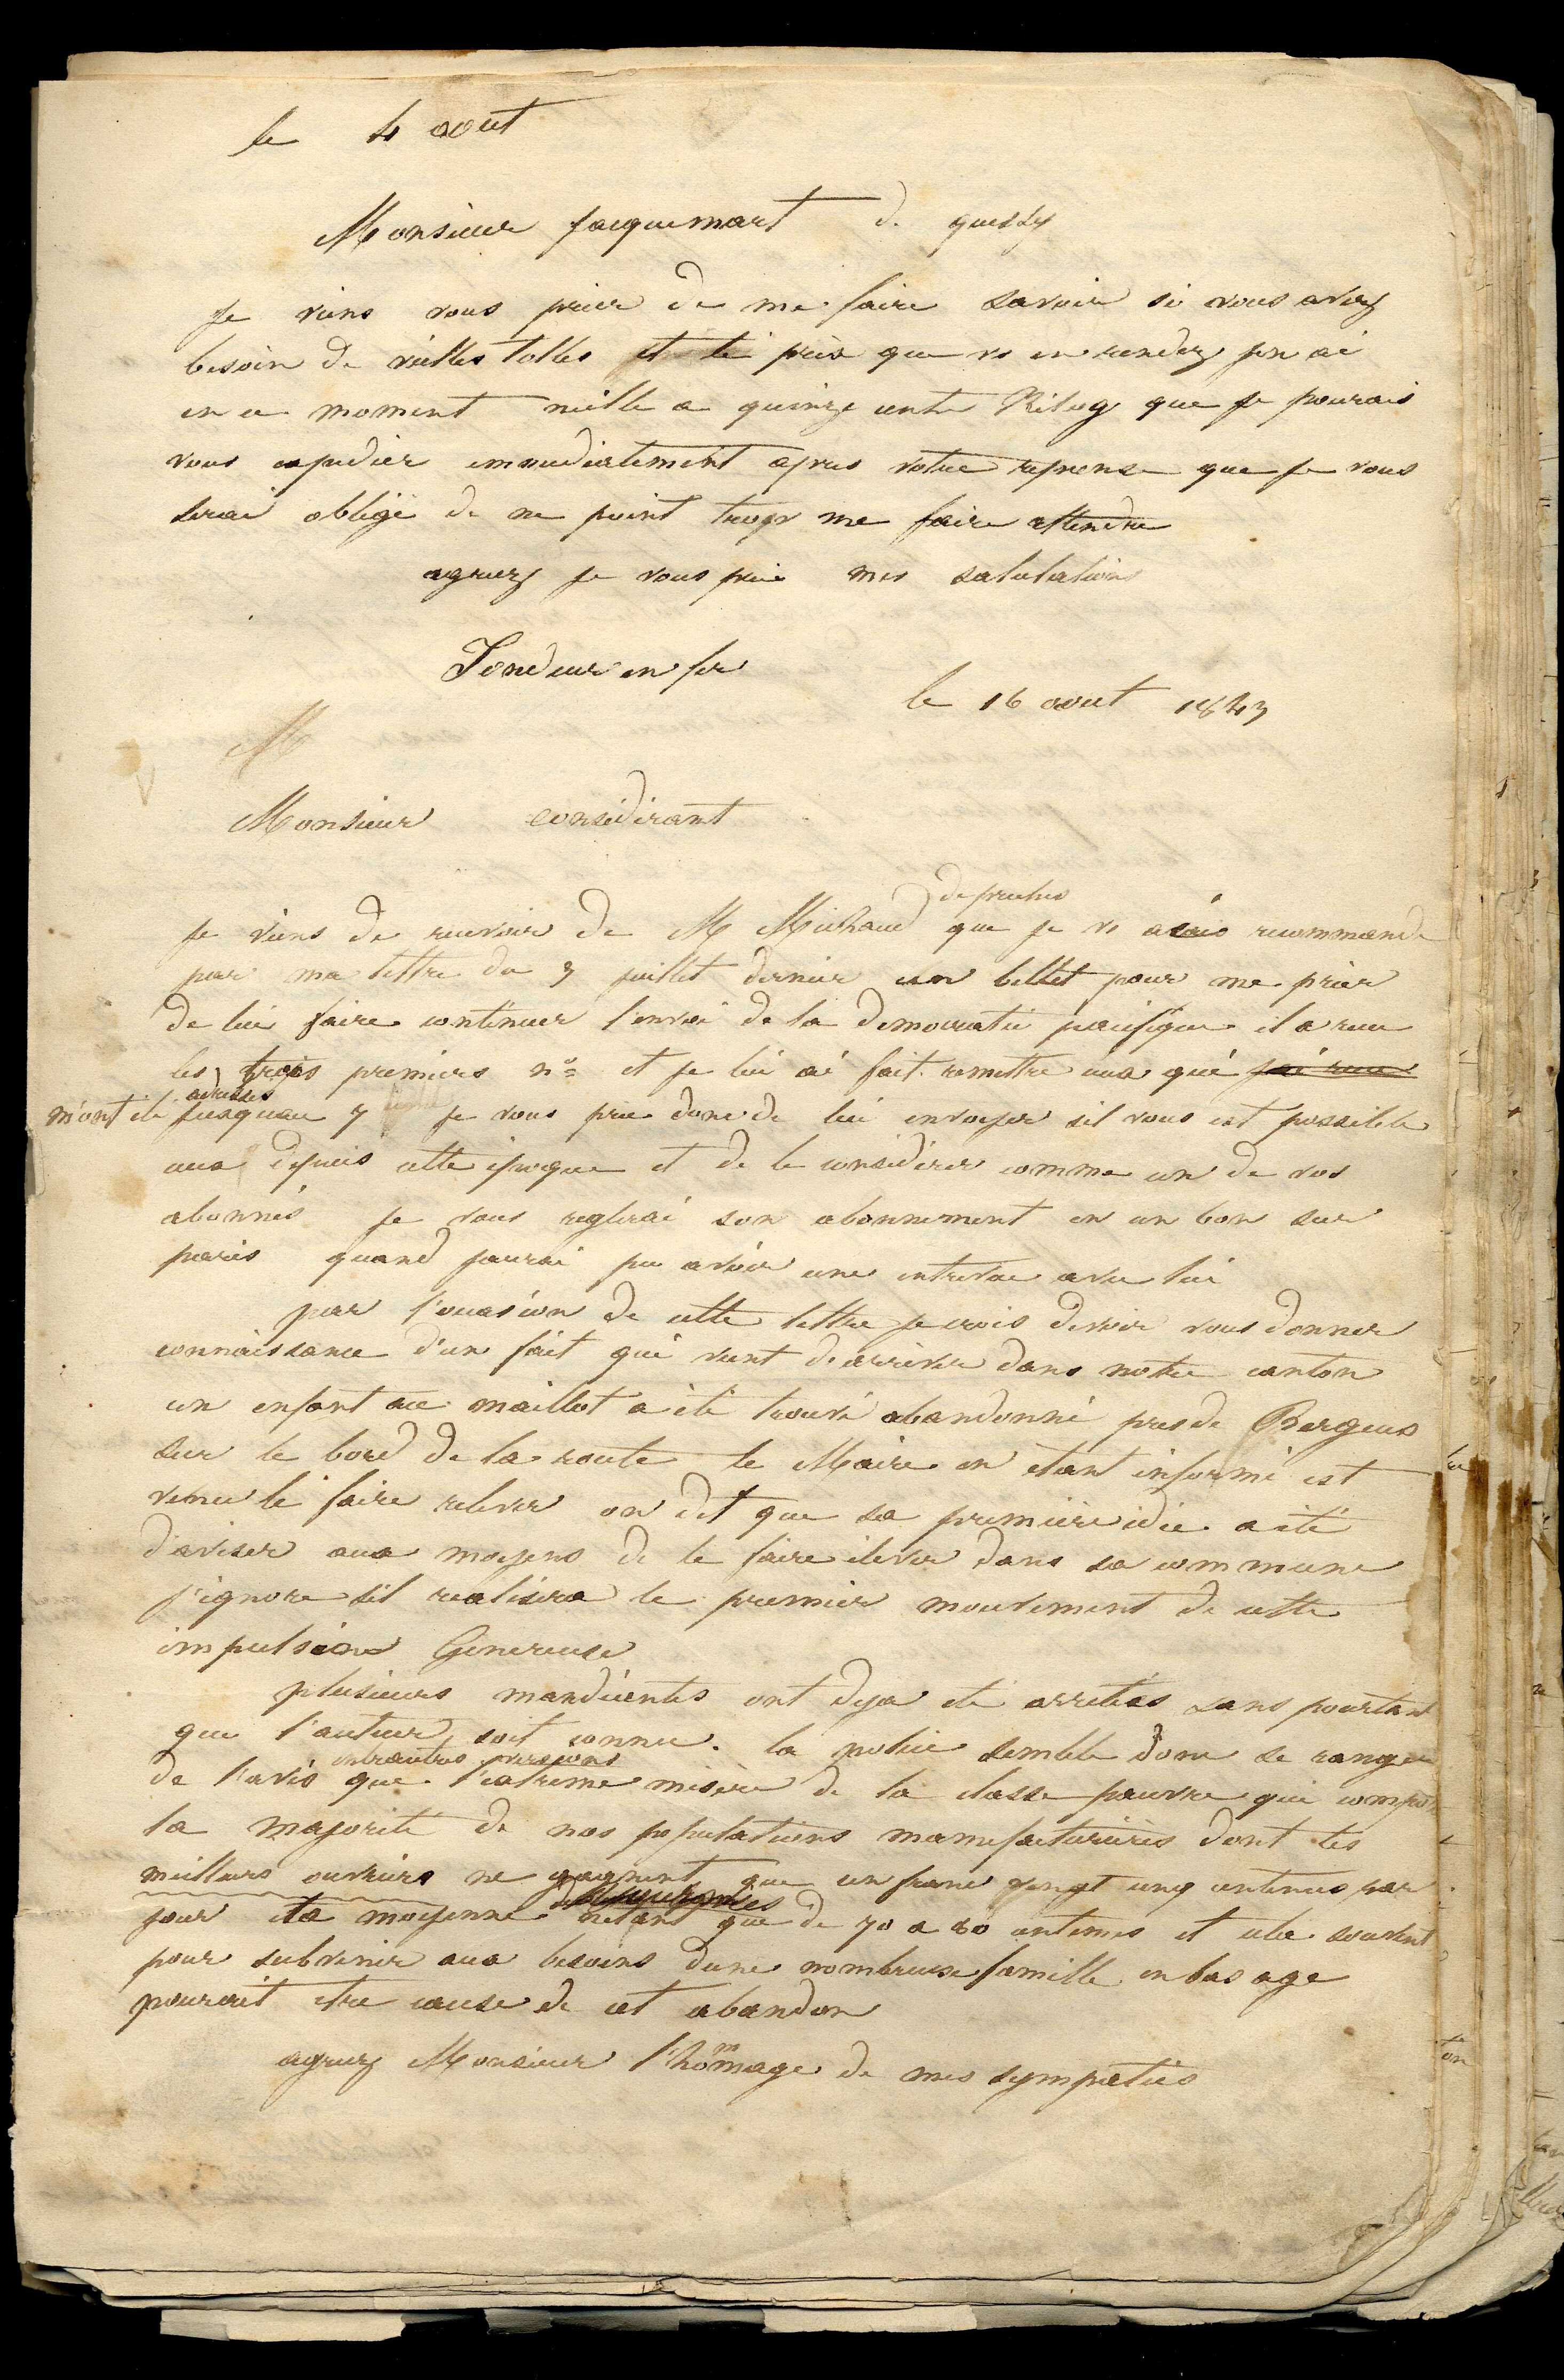 le 4 aout
Monsieur jacquemart de quessy
je viens vous prier de me faire savoir si vous avez
besoin de vielles tolles et le prix que vs en rendez jen ai
en ce moment mille a quinze cents Kilog que je pourais
vous expedier immediatement apres votre reponse que je vous
serai obligé de ne point trop me faire attendre
agreez je vous prie mes salutations
Fondeur en fer
le 16 aout 1843
M
Monsieur considerant
de pruches
je viens de recevoir de M Michaud que je vs avais recommande
par ma lettre du 3 juillet dernier un billet pour me prier
de lui faire continuer l'envoi de la democratie pacifique il a recu
les trois premiers nos et je lui ai fait remettre ceux qui j'ai recu
adresses
m'ont été jusquau 7 je vous prie donc de lui envoyer sil vous est possible
ceux depuis cette epoque et de le considerer comme un de vos
abonnés je vous reglerai son abonnement en un bon sur
paris quand jaurai pu avoir une entrevue avec lui
par l'ocasion de cette lettre je crois devoir vous donner
connaissance d'un fait qui vient de arriver dans notre canton
un enfant au maillot a été trouvé abandonné pres de Bergeus
sur le bord de la route le Maire en etant informé est
venu le faire relever on dit que sa premiere idée a été
d'aviser aux moyens de le faire elever dans sa commune
j'ignore sil realisera le premier mouvement de cette
impulsion Genereuse
plusieurs mandientes ont deja été arretées sans pourtant
que l'auteur soit connu. la police semble donc se ranger
entrautres versions
de l'avis que l'extreme misère de la classe pauvre qui compose
la majorité de nos populations manufacturieres dont les
meilleurs ouvriers ne gagnent que un franc vingt cinq centimes par
jour et la moyenne netant que de 70 a 80 centimes et cela souvent
pour subvenir aux besoins dune nombreuse famille en bas age
pourait etre cause de cet abandon
agreez Monsieur l'hommage de mes sympaties